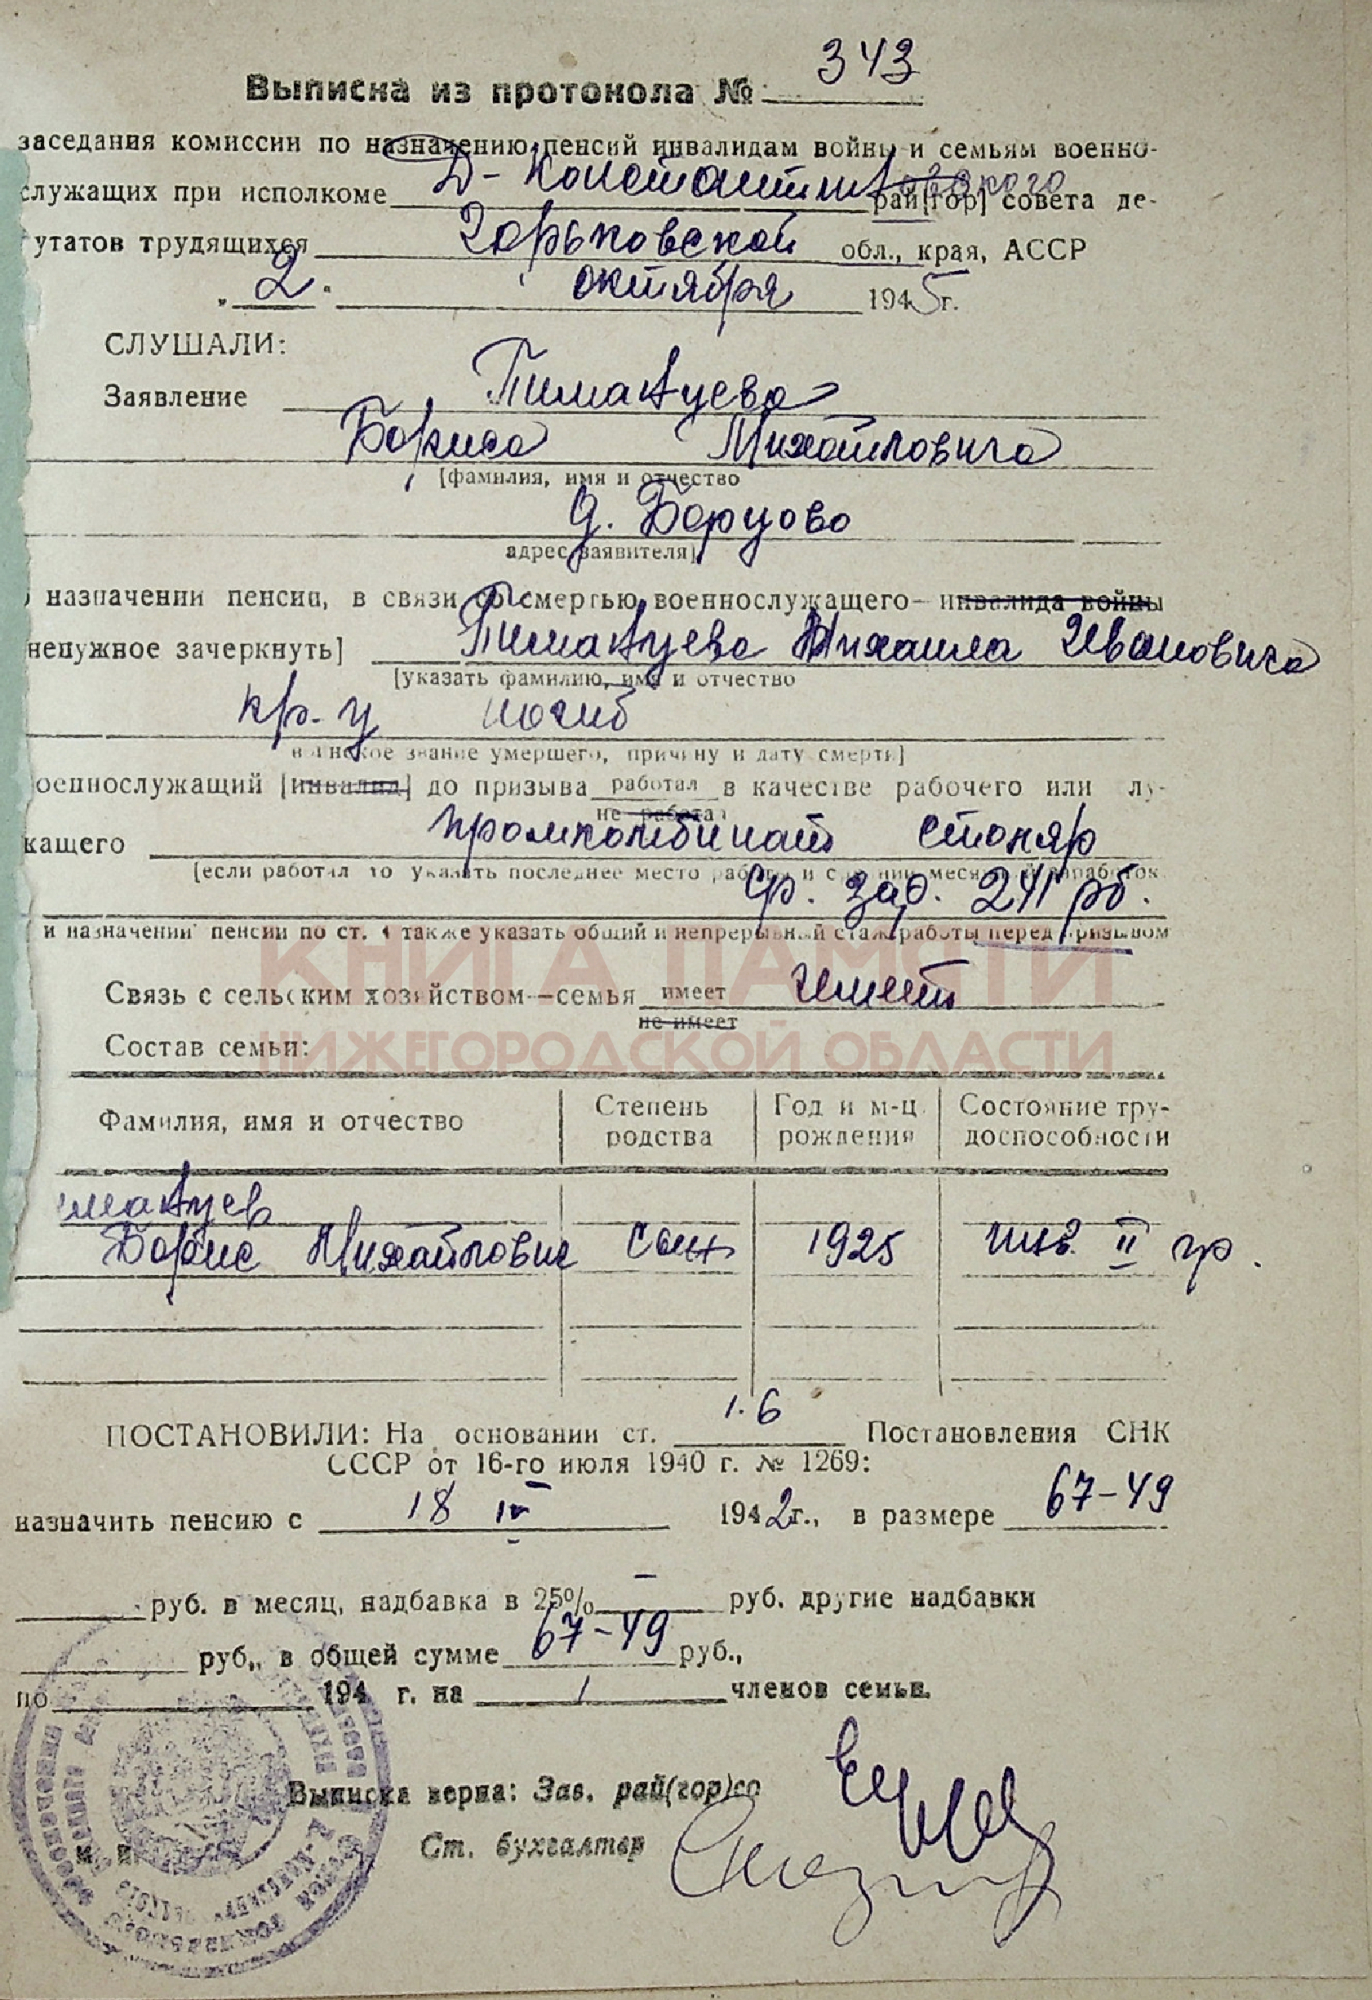 Выписка из протокола № 343
заседания комиссии по назначению пенсий инвалидам войны и семьям военно-
служащих при исполкоме Д-Константиновского рай[гор] совета де-
путатов трудящихся Горьковской обл., края, АССР
„2" октября 1945г.
СЛУШАЛИ:
Заявление Тимакуева
Бориса Михайловича
[фамилия, имя и отчество
д. Борцово
адрес заявителя]
назначении пенсии, в связи со смертью военнослужащего- инвалида войны
ненужное зачеркнуть] Тимакуева Михаила Ивановича
[указать фамилию, имя и отчество
кр-ц погиб
воинское звание умершего, причину и дату смерти]
оеннослужащий [инвалид] до призыва работал в качестве рабочего или лу-
не работал
кащего промкомбинат столяр
[если работал то указать последнее место работы и средний месячный заработок
ср. зар. 241 рб.
и назначении пенсии по ст. 4 также указать общий и непрерывный стаж работы перед призывом
КНИГА ПАМЯТИ
Связь с сельским хозяйством—семья имеет имеет
не имеет
НИЖЕГОРОДСКОЙ ОБЛАСТИ
Состав семьи:
Фамилия, имя и отчество Степень родства Год и м-ц рождения Состояние тру-доспособности
имакуев
Борис Михайлович сын 1925 инв. II гр.
ПОСТАНОВИЛИ: На основании ст. 1.6 Постановления СНК
СССР от 16-го июля 1940 г. № 1269:
назначить пенсию с 18 IV 1942г., в размере 67-49
руб. в месяц, надбавка в 25% — руб. другие надбавки
руб., в общей сумме 67-49 руб.,
по 194 г. на 1 членов семьи.
Выписка верна: Зав. рай(гор)со
Ст. бухгалтер